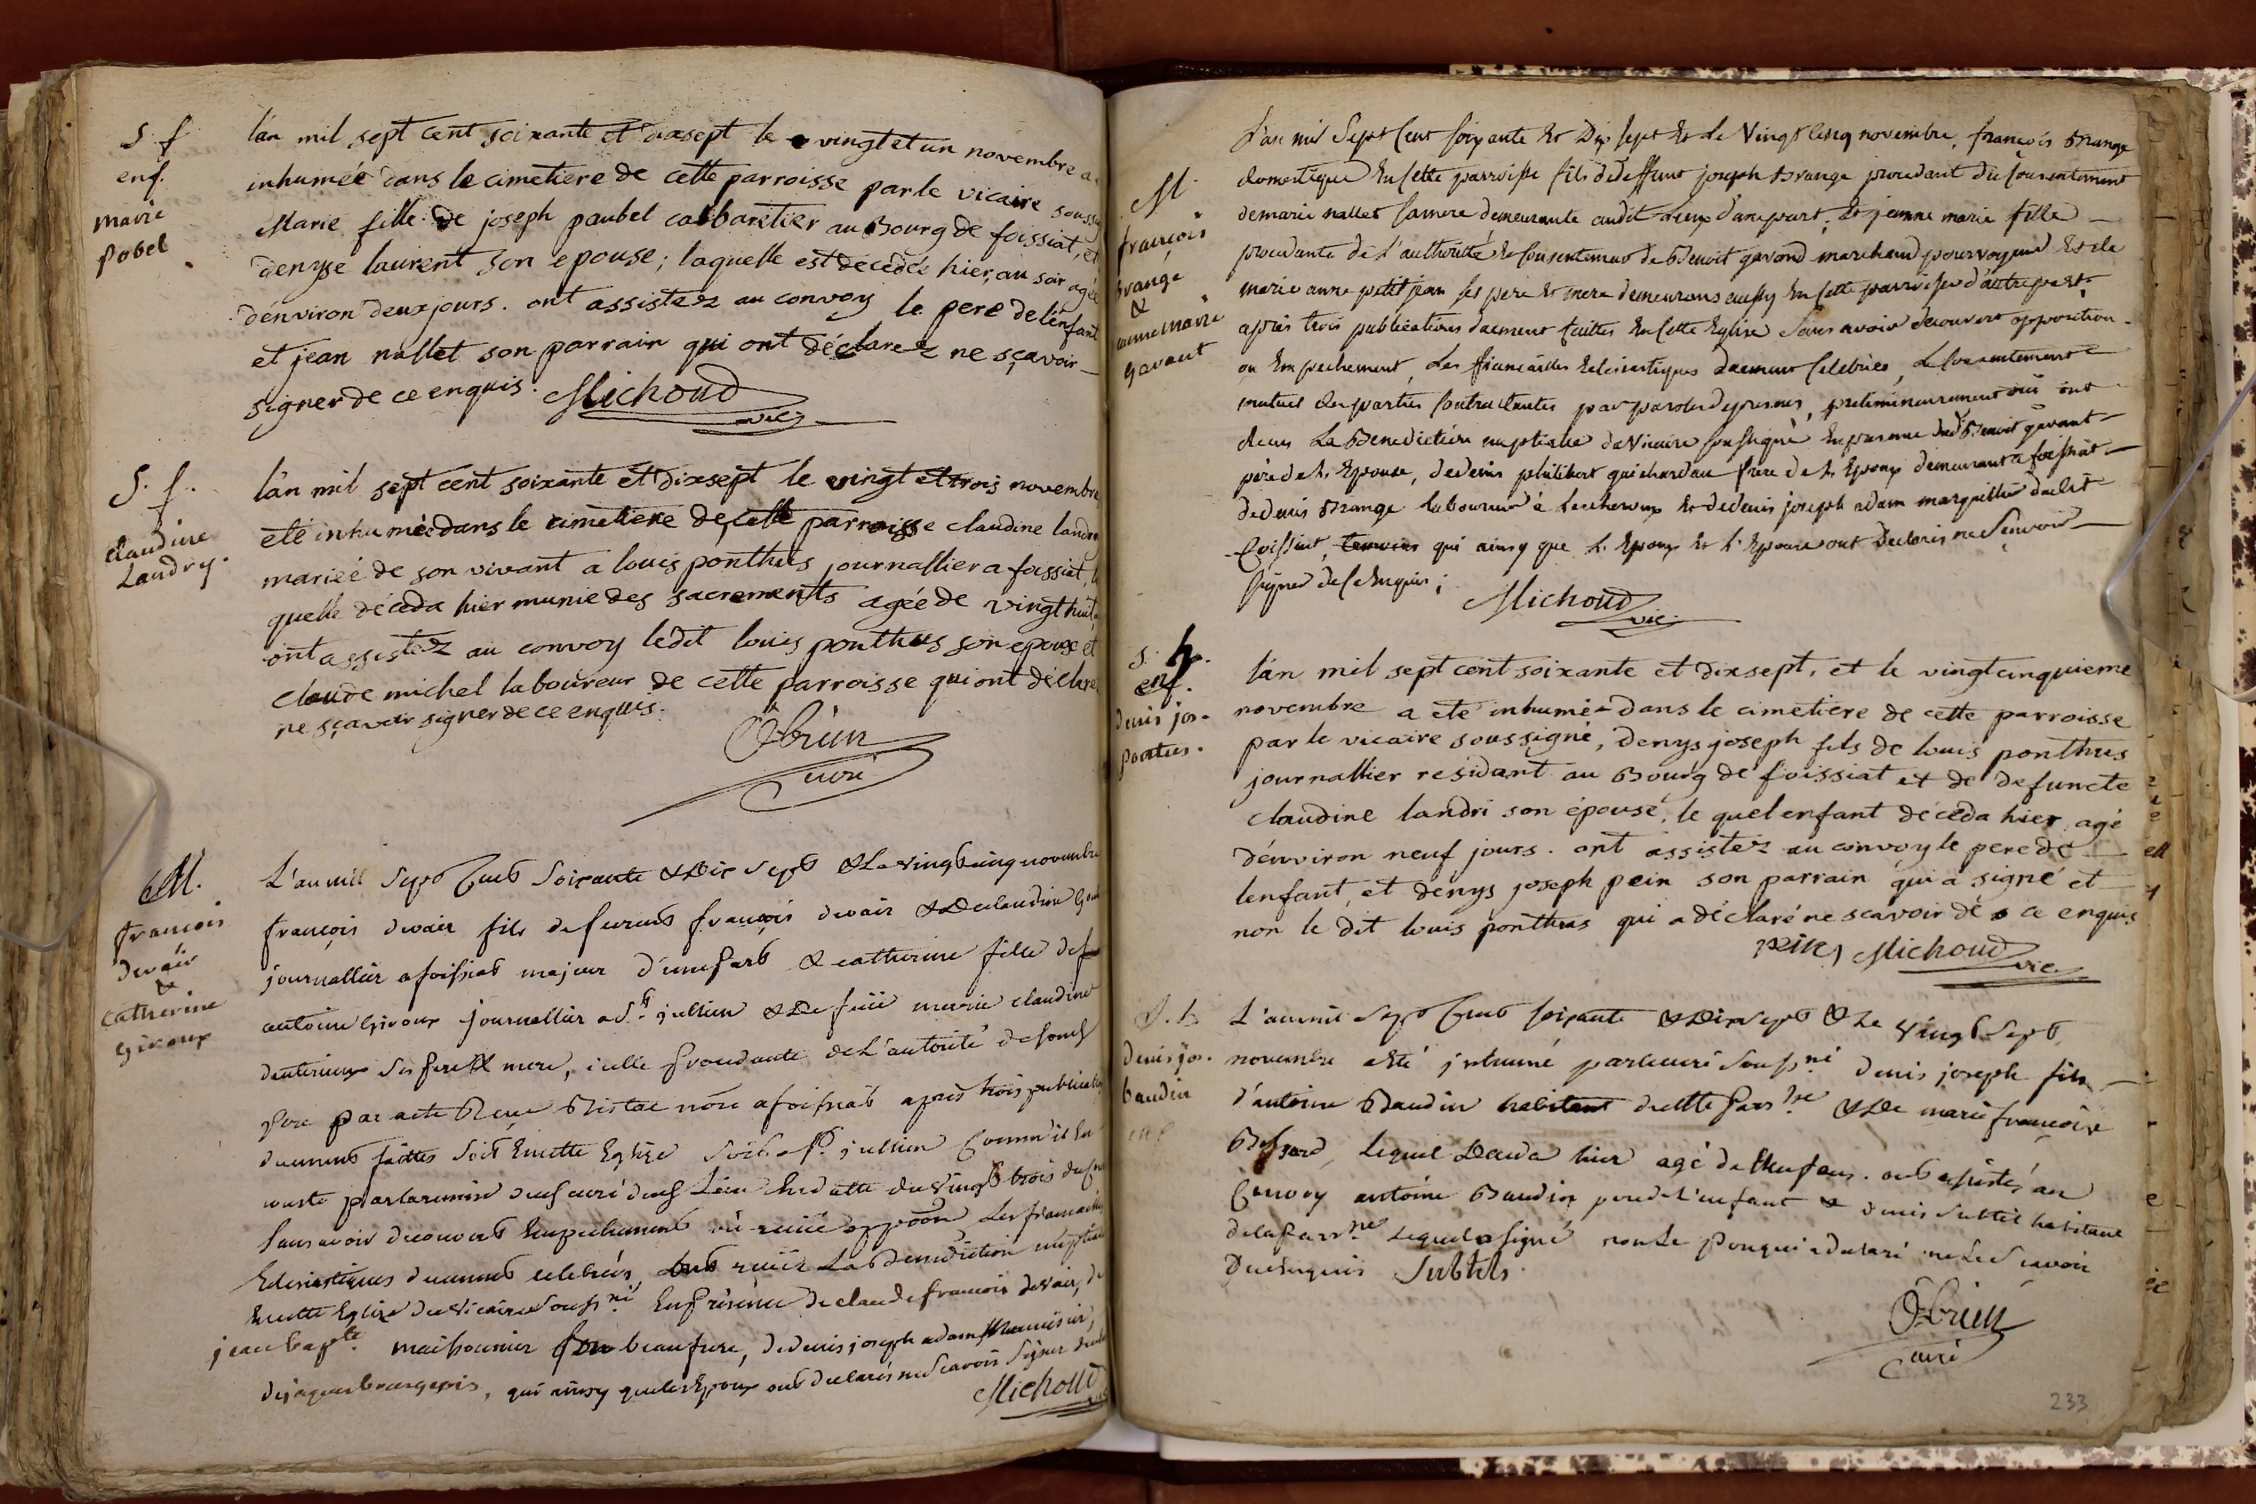 S. f.
enf.
marie
pobel
l'an mil sept cent soixante et dixsept le vingt et un novembre a
inhumée dans le cimetiere de cette parroisse par le vicaire soussi
Marie fille de joseph paubel cabbaretier au Bourg de foissiat, et
denyse laurent son epouse; laquelle est décedée hier, au soir agée
d'environ deux jours. ont assistez au convoy le pere de l'enfant
et jean nallet son parrain qui ont déclarez ne sçavoir
signer de ce enquis. Michoud
vic.
S. f.
claudine
Landry.
l'an mil sept cent soixante et dixsept le vingt et trois novembre
eté inhumée dans le cimetiere de cette parroisse claudine landri
mariée de son vivant a louis ponthus journallier a foissiat, la
quelle déceda hier munie des sacrements agée de vingt huit
ont assistez au convoy ledit louis ponthus son epoux et
claude michel laboureur de cette parroisse qui ont déclaré
ne sçavoir signer de ce enquis.
Obrien
curé
M.
francois
devaix
&
catherine
Giroux
L'an mil Sept Cent Soixante & Dix Sept & Le vingt cinq novembre
françois devaix fils de furent françois devaix & De claudine
journallier a foissiat majeur d'une part & catherine fille de
antoine Giroux journallier a St. jullien & De feüe marie claudine
ses pere & mere, icelle procedante de L'autorité de son
pere par acte Reçu nore a foissiat après trois publications
duement faittes soit En cette Eglise soit a St. jullien Comm'il
conste par la remise du sr curé dud. Lieu En datte du vingt trois du
sans avoir decouvert Empechement ni reçüe oppoon Les fiancailles
Eclesiastiques duement celebrées, ont reçüe La Benediction nuptiale
En cette Eglise du vicaire Soussné En Présence de claude francois devaix, de
jean bapte. maisonnier son beaufrere, de denis joseph adam
de jaques bourgeois, qui ainsy que les Epoux ont declarés ne Scavoir Signer
Michoud
M.
françois
Brange
&
jeanne marie
Gavant
L'an mil Sept Cent Soixante Et Dix Sept Et Le Vingt Cinq novembre, françois Brange
domestique En Cette parroisse fils de deffunt joseph Brange procedant du Consentement
de marie nallet Sa mere demeurante audit lieux d'une part, Et jeanne marie fille
procedante de L'authorité Et Consentement de Benoit gavand marchand pourvoyeur Et de
marie anne petit jean ses pere Et mere demeurans aussy En Cette parroisse d'autre part.
après trois publications duement faittes En Cette Eglise Sans avoir decouvert opposition
ou Empechement, Les fiancailles Eclesiastiques duement Celebrées, Le Consentement
mutuel des parties Contractantes par paroles de presens, preliminairement oüi ont
receus La Benediction nuptiale du Vicaire Soussigné En presence dud. Benoit gavant
père de L. Epouse, de denis philibert guichardan frere de L. Epoux demeurant a foissiat
de denis Brange laboureur à Lescheroux Et de denis joseph adam marguillier dudit
foissiat, temoins qui ainsy que L. Epoux Et L. Epouse ont Declarés ne Scavoir
Signer de Ce Enquis;
Michoud
vic.
S. h.
enf.
denis jos.
pontus.
l'an mil sept cent soixante et dixsept, et le vingt cinquieme
novembre a eté inhumé dans le cimetiere de cette parroisse
par le vicaire soussigné, denys joseph fils de louis ponthus
journallier residant au Bourg de foissiat et de defuncte
claudine landri son épouse, le quel enfant déceda hier agé
d'environ neuf jours. ont assistez au convoy le pere de
lenfant, et denys joseph pein son parrain qui a signé et
non le dit louis ponthus qui a déclaré ne scavoir dé ce enquis
pein Michoud
vic.
S. h.
denis jos.
baudin
enf.
L'an mil Sept Cent soixante & Dix sept & Le vingt Sept
novembre a Eté jnhumé par le curé Soussné denis joseph fils
d'antoine Baudin habitant de cette Parrse & De marie françoise
lequel Deceda hier agé de Neuf ans. ont assistés au
Convoy antoine Baudin pere de L'enfant & denis subtil habitant
de la Parrse Lequel a signé non Le Pere qui a declaré ne Le Scavoir
De ce Enquis Subtils
Obrien
curé
233